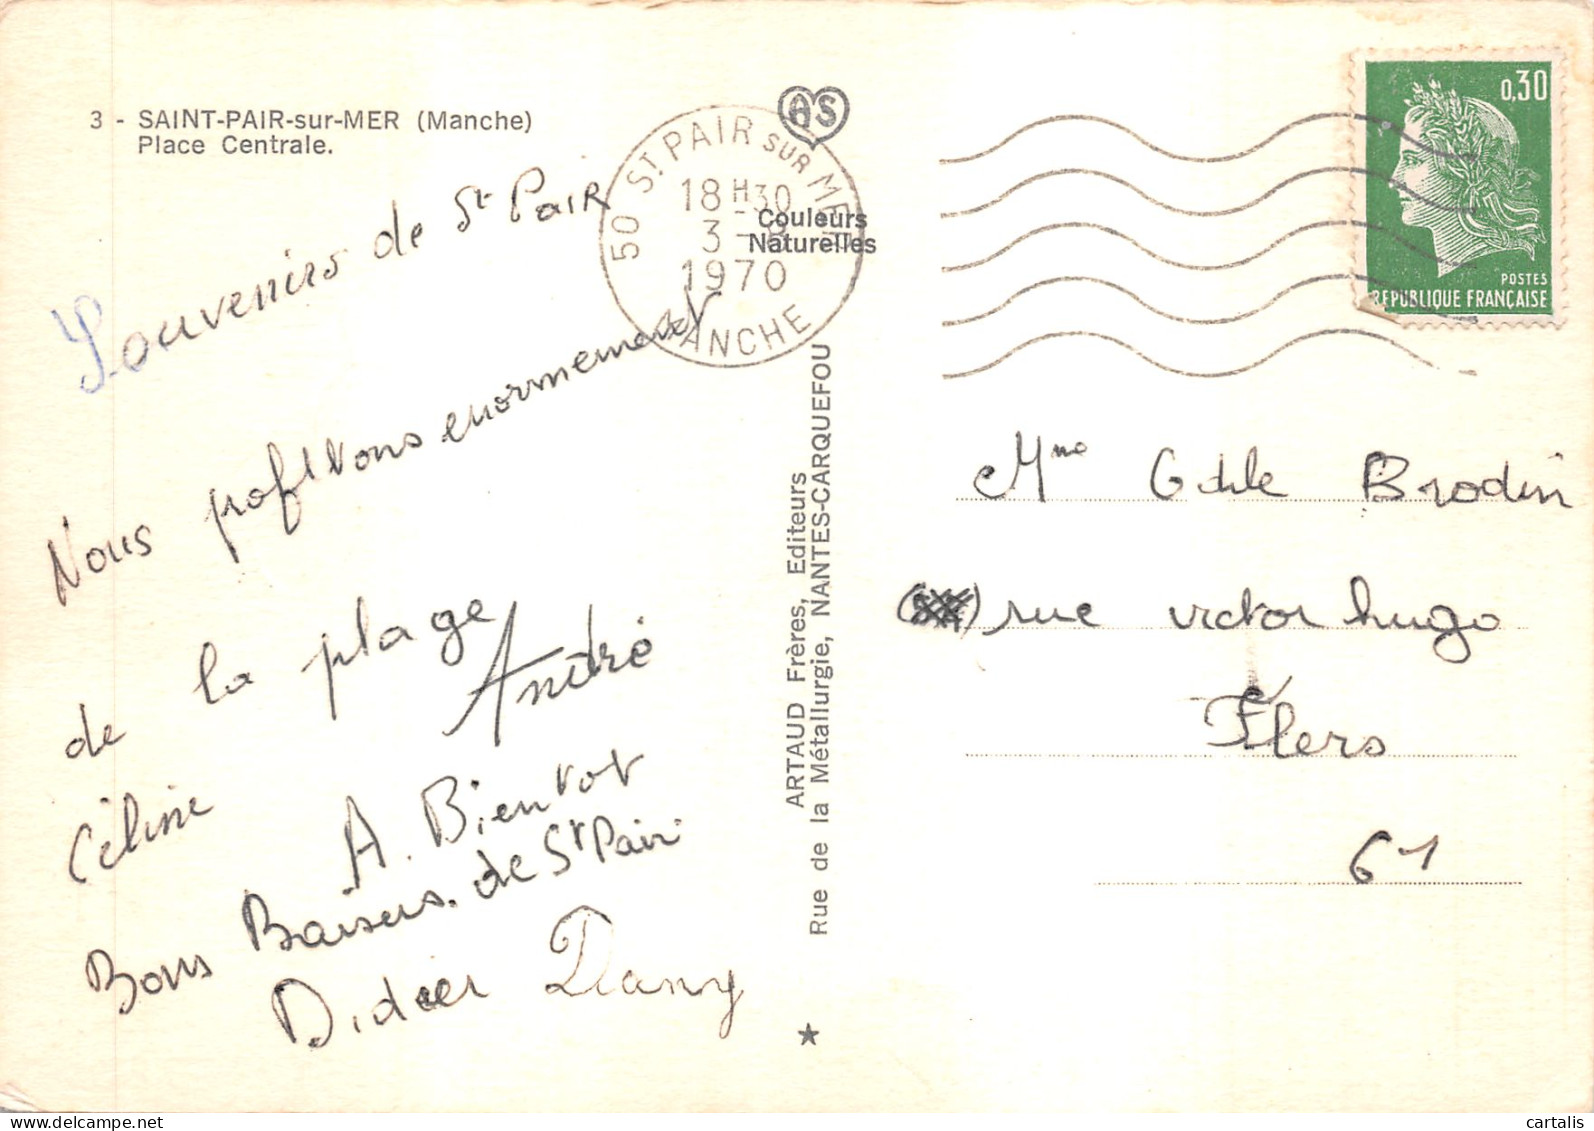 3 - SAINT-PAIR-sur-MER (Manche)
Place Centrale.
Souvenirs de St PaiR
Nous profitons enormement
de la plage
André
Céline
A. Bientot
Bons Baisers. de St Pair
Didier Dany
AS
50 ST PAIR SUR MER
18H30
3 - 8
1970
MANCHE
Couleurs
Naturelles
ARTAUD Frères, Editeurs
Rue de la Métallurgie, NANTES-CARQUEFOU
0,30
POSTES
REPUBLIQUE FRANÇAISE
Mme Odile Brodin
rue victor hugo
Flers
61
www.delcampe.net
cartalis